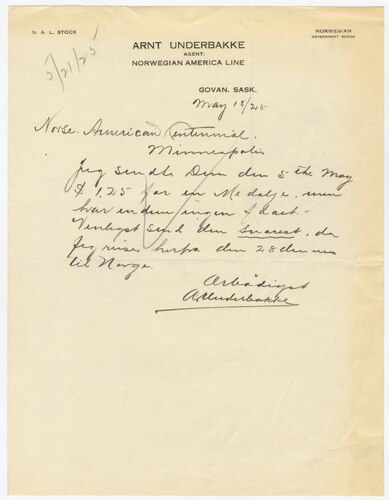 N. A. L. STOCK
NORWEGIAN
GOVERNMENT BONDS
ARNT UNDERBAKKE
AGENT:
NORWEGIAN AMERICA LINE
5/21/25
GOVAN, SASK.
May 18/25
Norse. American Centennial.
Minneapolis
Jeg sendte Dem den 5 the May
$ 1.25 for en Medalje, men
har endnu ingen faaet.
Venligst send den snarest, da
Jeg reiser herfra den 28
til Norge.
Ærbødigst
A Underbakke